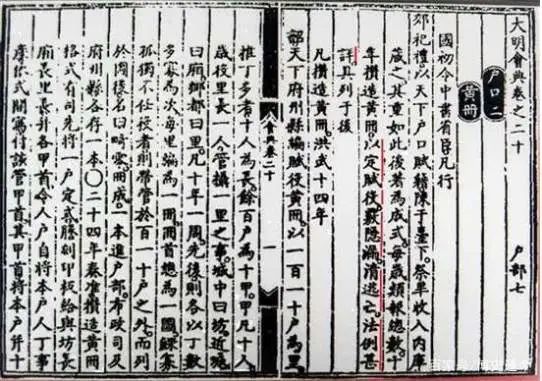 大明會典卷之二十 戶部七
戶口二
黃冊
國初令中書省臣凡行
郊祀禮以天下戶口賦籍陳于臺下祭畢收入內庫
藏之其重如此後著為成式每歲類報總數十
年攢造黃冊以定賦役覈隱漏清逃亡法例甚
詳具列于後
凡攢造黃冊洪武十四年
詔天下府州縣編賦役黃冊以一百一十戶為里
會典卷二十
一
推丁多者十人為長餘百戶為十甲甲凡十人
歲役里長一人管攝一里之事城中曰坊近城
曰廂鄉都曰里凡十年一周先後則各以丁數
多寡為次每里編為一冊冊首總為一圖鰥寡
孤獨不任役者則帶管於百一十戶之外而列
於圖後名曰畸零冊成一本進戶部布政司及
府州縣各存一本〇二十四年奏准攢造黃冊
格式有司先將一戶定式謄刻印板給與坊長
廂長里長并各甲首令人戶自將本戶人丁事
產依式開寫付該管甲首其甲首將本戶并十